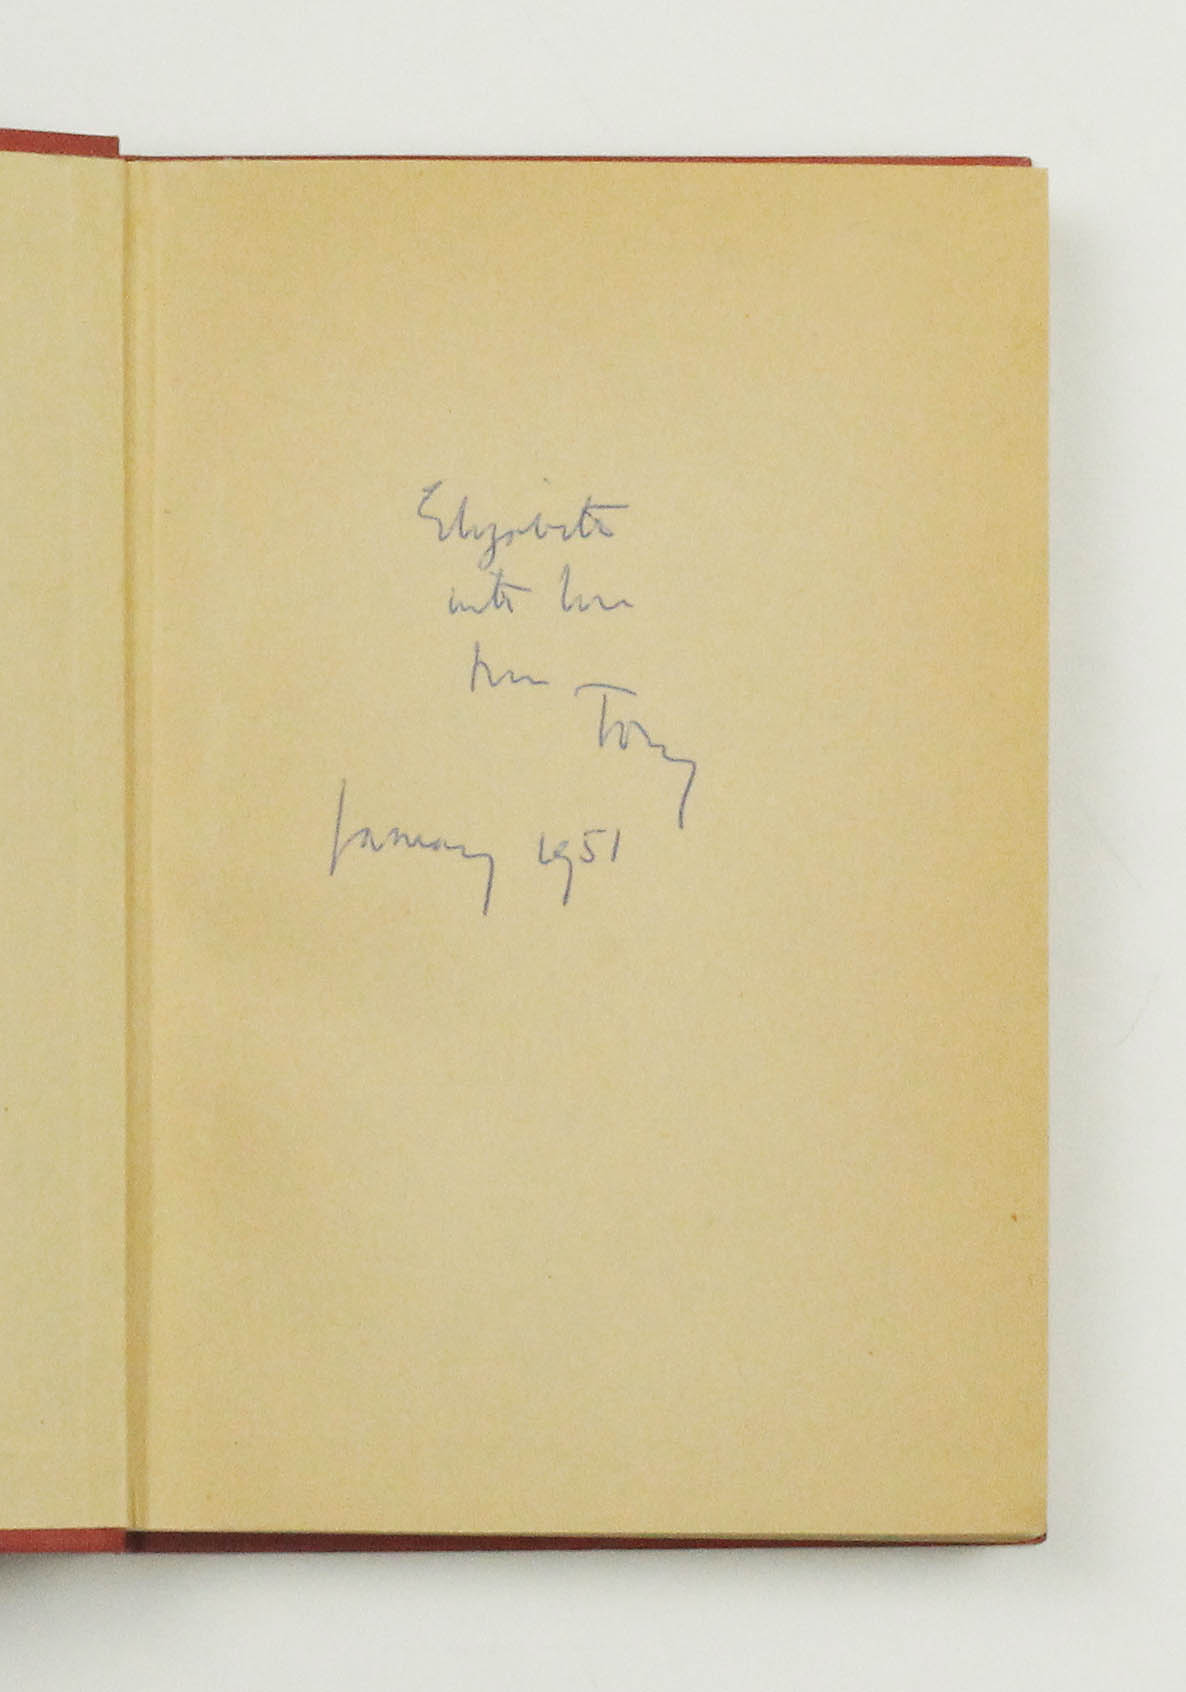 Elizabeth
with love
from
Tony
January 1951